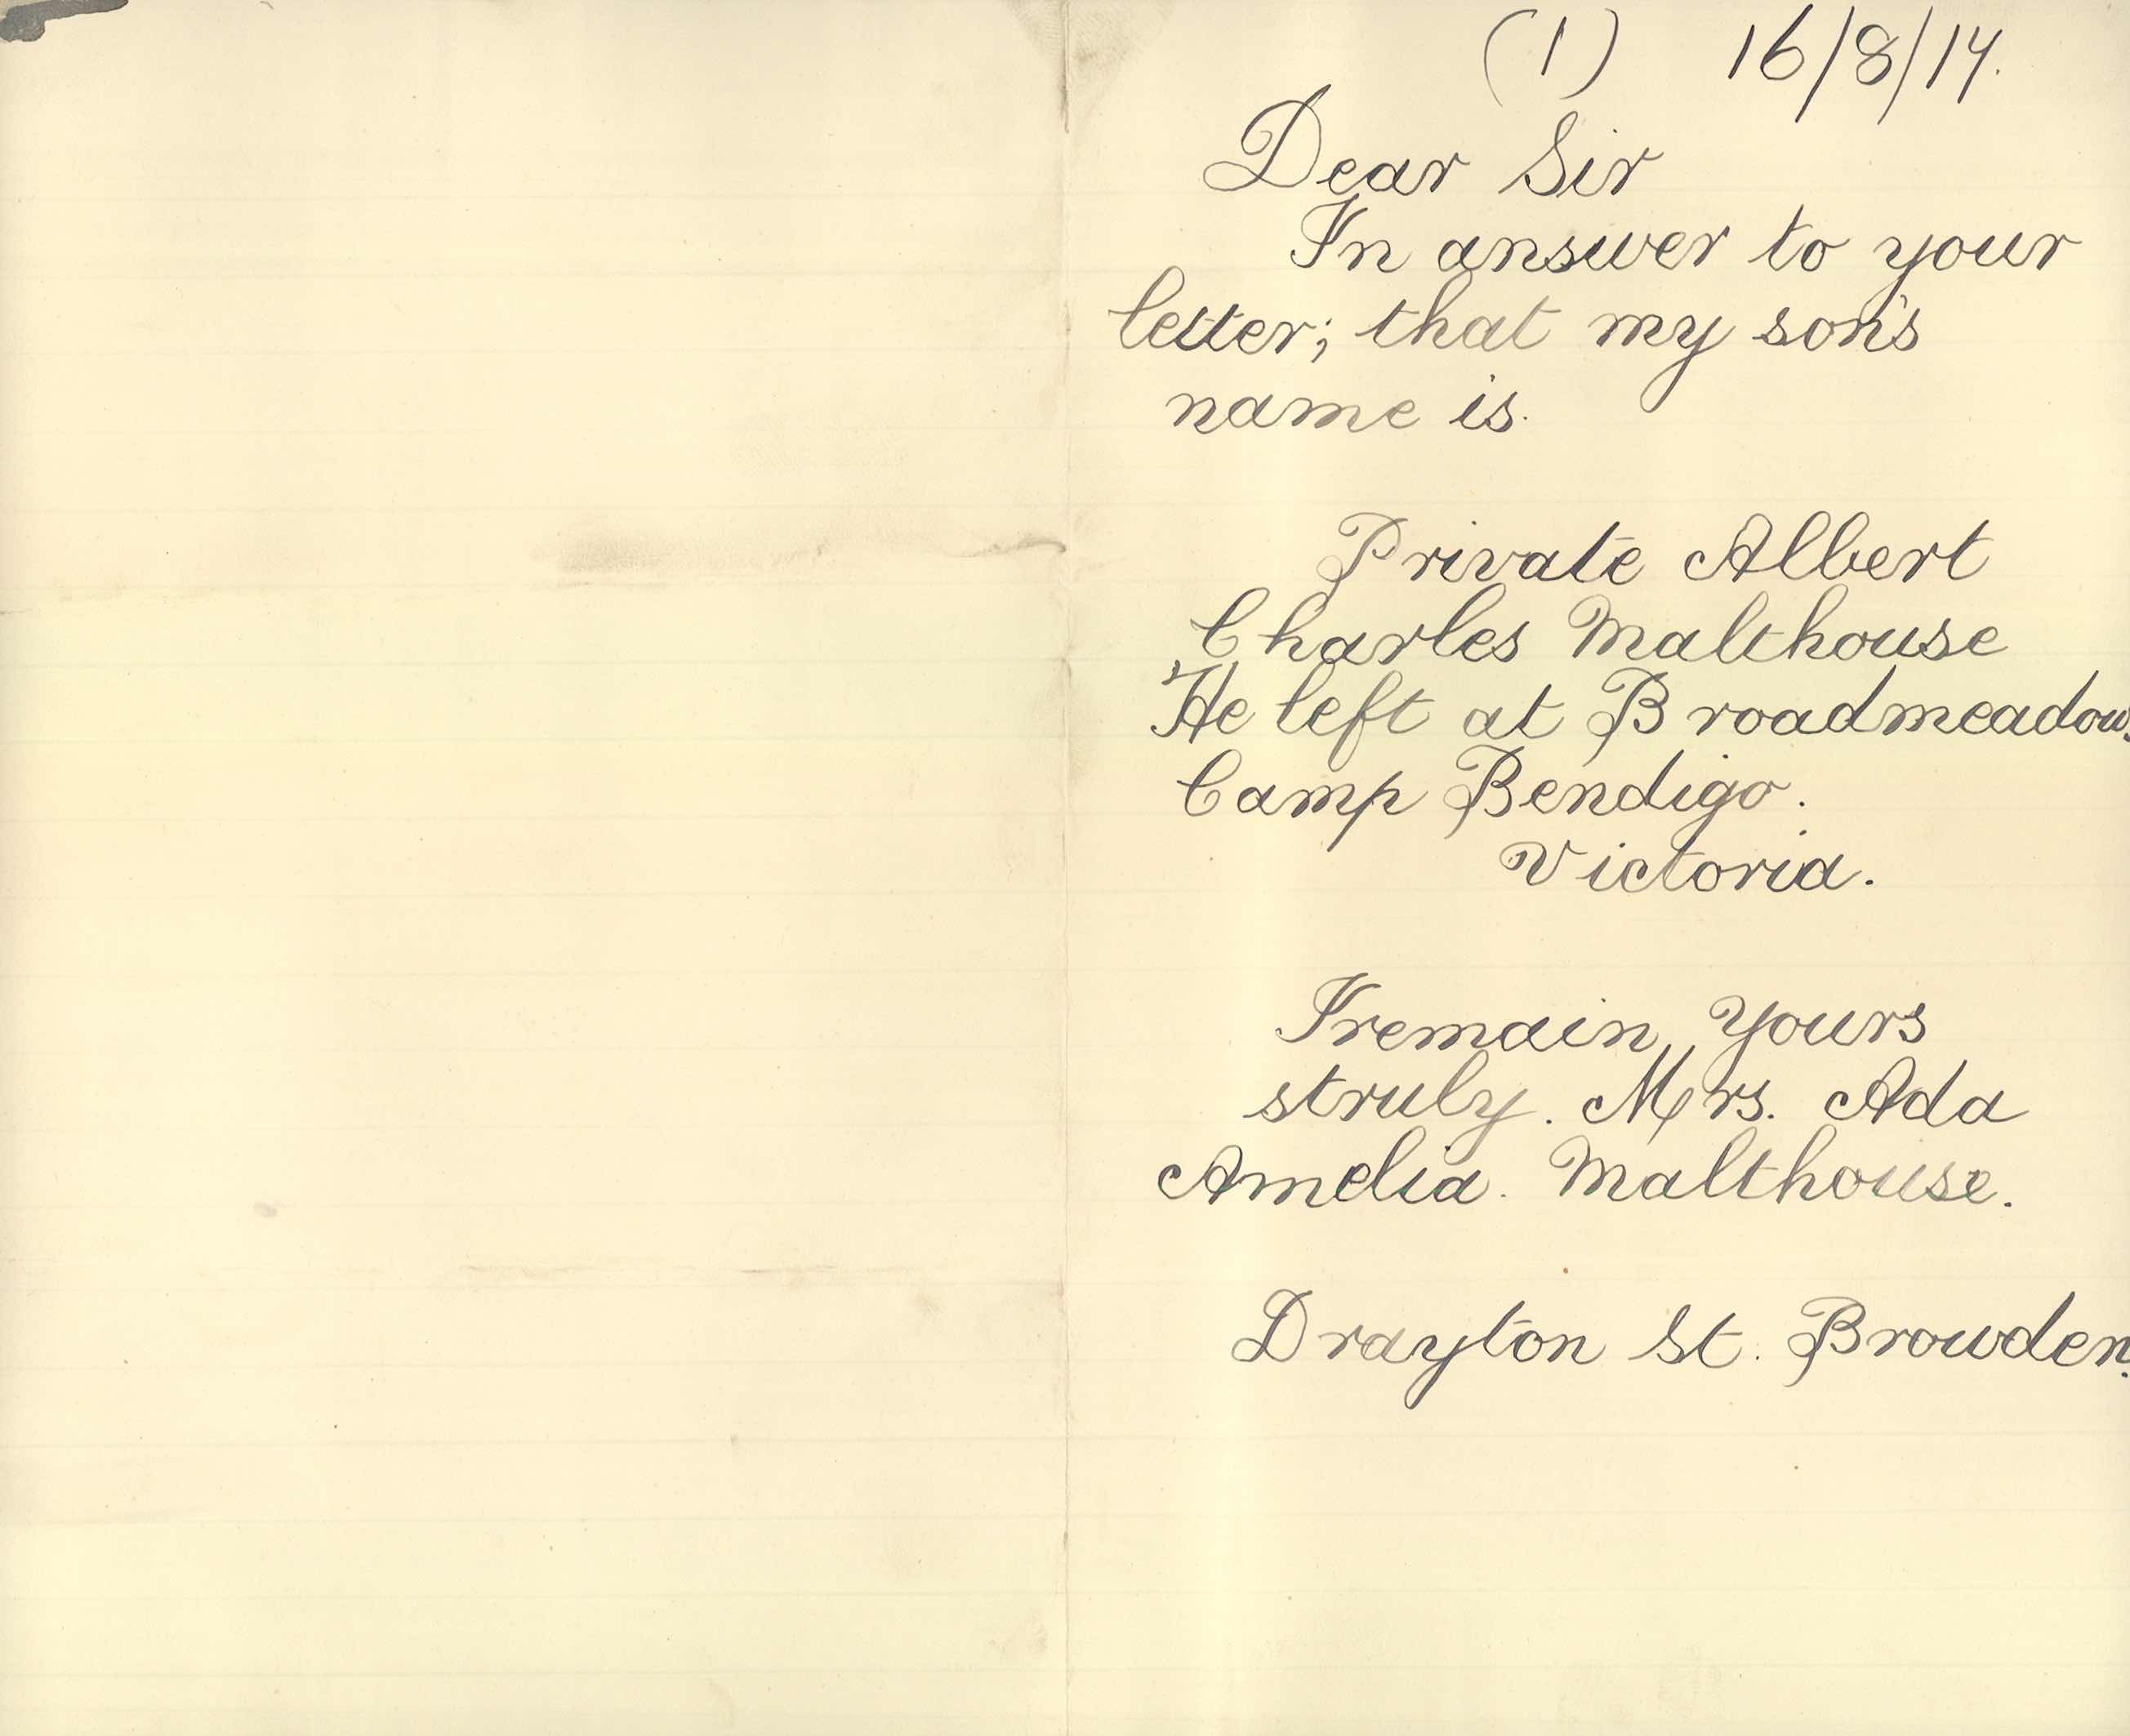 (1) 16/8/17.
Dear Sir
In answer to your
letter; that my son's
name is.
Private Albert
Charles Malthouse
He left at Broadmeadows
Camp Bendigo.
Victoria.
I remain, Yours
struly. Mrs. Ada
Amelia. Malthouse.
Drayton St. Browden.